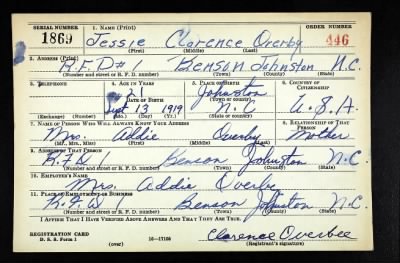 SERIAL NUMBER 1. NAME (Print) ORDER NUMBER
1869 Jessie Clarence Overby 446
(First) (Middle) (Last)
2. ADDRESS (Print)
R.F.D# Benson Johnston N.C.
(Number and street or R. F. D. number) (Town) (County) (State)
3. TELEPHONE 4. AGE IN YEARS 5. PLACE OF BIRTH 6. COUNTRY OF CITIZENSHIP
21 Johnston
DATE OF BIRTH (Town or county)
Sept 13 1919 N.C. U.S.A.
(Exchange) (Number) (Mo.) (Day) (Yr.) (State or country)
7. NAME OF PERSON WHO WILL ALWAYS KNOW YOUR ADDRESS 8. RELATIONSHIP OF THAT PERSON
Mrs. Addie Overby Mother
(Mr., Mrs., Miss) (First) (Middle) (Last)
9. ADDRESS OF THAT PERSON
R.F.D 1 Benson Johnston N.C
(Number and street or R. F. D. number) (Town) (County) (State)
10. EMPLOYER'S NAME
Mrs. Addie Overby
11. PLACE OF EMPLOYMENT OR BUSINESS
R.F.D 1 Benson Johnston N.C.
(Number and street or R. F. D. number) (Town) (County) (State)
I AFFIRM THAT I HAVE VERIFIED ABOVE ANSWERS AND THAT THEY ARE TRUE.
REGISTRATION CARD
D. S. S. Form 1 (over) 16-17105 Clarence Overbee
(Registrant's signature)